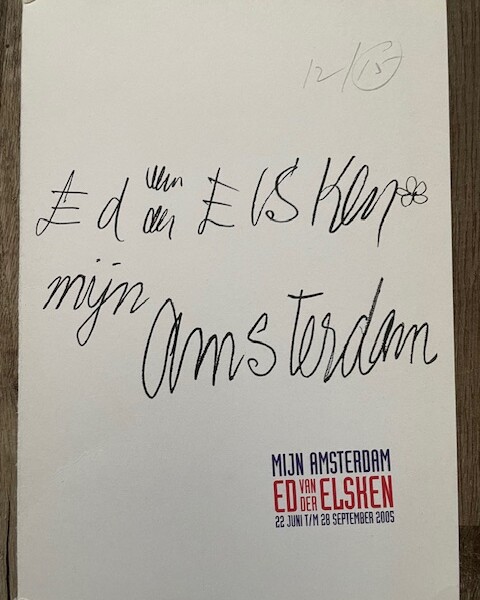 12/15
Ed van der Elsken
mijn
Amsterdam
MIJN AMSTERDAM
ED VAN DER ELSKEN
22 JUNI T/M 28 SEPTEMBER 2005